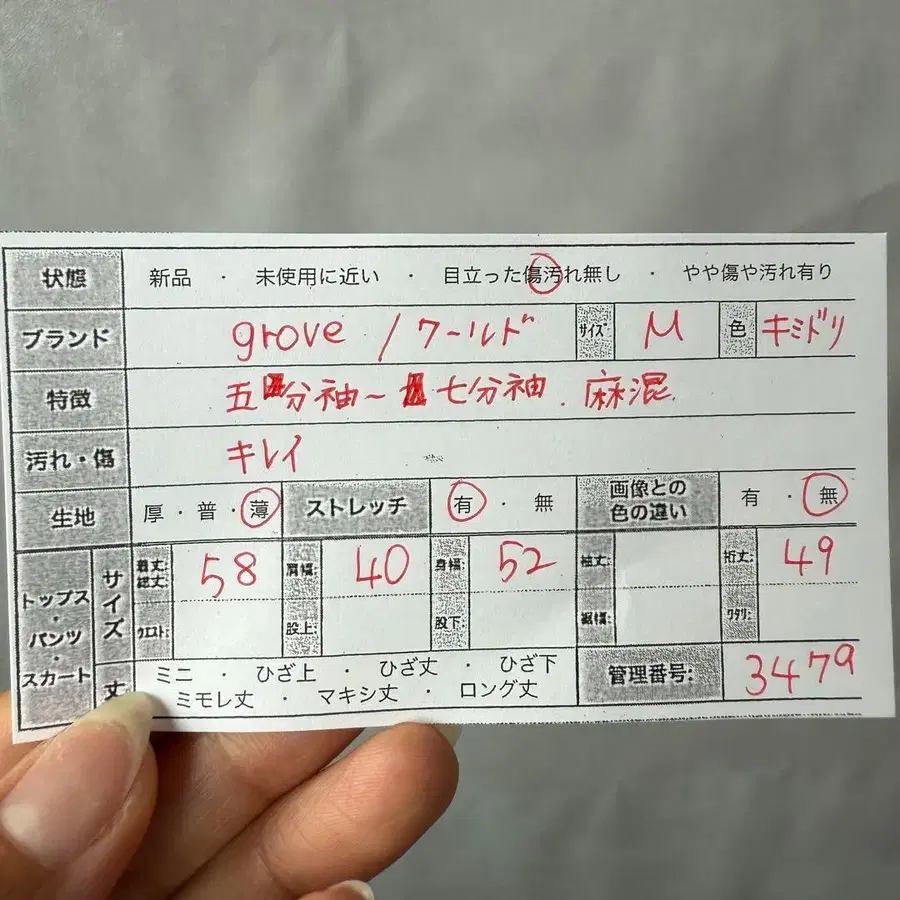 状態 新品 ・ 未使用に近い ・ 目立った傷汚れ無し ・ やや傷や汚れ有り
ブランド grove / ワールド サイズ M 色 キミドリ
特徴 五分袖～七分袖. 麻混.
汚れ・傷 キレイ
生地 厚・普・薄 ストレッチ 有・無 画像との色の違い 有・無
トップス・パンツ・スカート サイズ 着丈:総丈: 58 肩幅: 40 身幅: 52 袖丈: 裄丈: 49
ウエスト: 股上: 股下: 裾幅: ワタリ:
丈 ミニ ・ ひざ上 ・ ひざ丈 ・ ひざ下 管理番号: 3479
ミモレ丈 ・ マキシ丈 ・ ロング丈